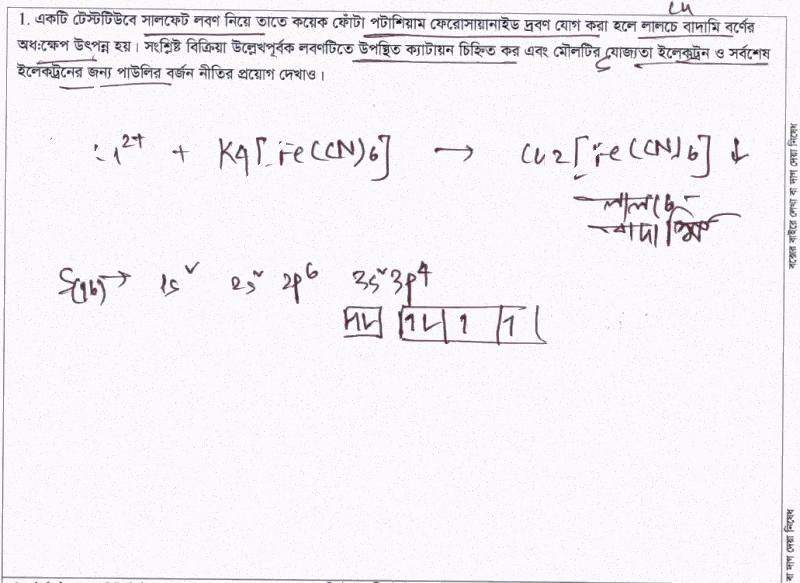 Cu
1. একটি টেস্টটিউবে সালফেট লবণ নিয়ে তাতে কয়েক ফোঁটা পটাশিয়াম ফেরোসায়ানাইড দ্রবণ যোগ করা হলে লালচে বাদামি বর্ণের
অধঃক্ষেপ উৎপন্ন হয়। সংশ্লিষ্ট বিক্রিয়া উল্লেখপূর্বক লবণটিতে উপস্থিত ক্যাটায়ন চিহ্নিত কর এবং মৌলটির যোজ্যতা ইলেকট্রন ও সর্বশেষ
ইলেকট্রনের জন্য পাউলির বর্জন নীতির প্রয়োগ দেখাও।
2+ + K4[Fe(CN)6] → Cu2[Fe(CN)6] ↓
লালচে
S(16) → 1s² 2s² 2p6 3s² 3p4
1L 1L 1 1
বক্সের বাইরে লেখা বা দাগ দেয়া নিষেধ
বা দাগ দেয়া নিষেধ